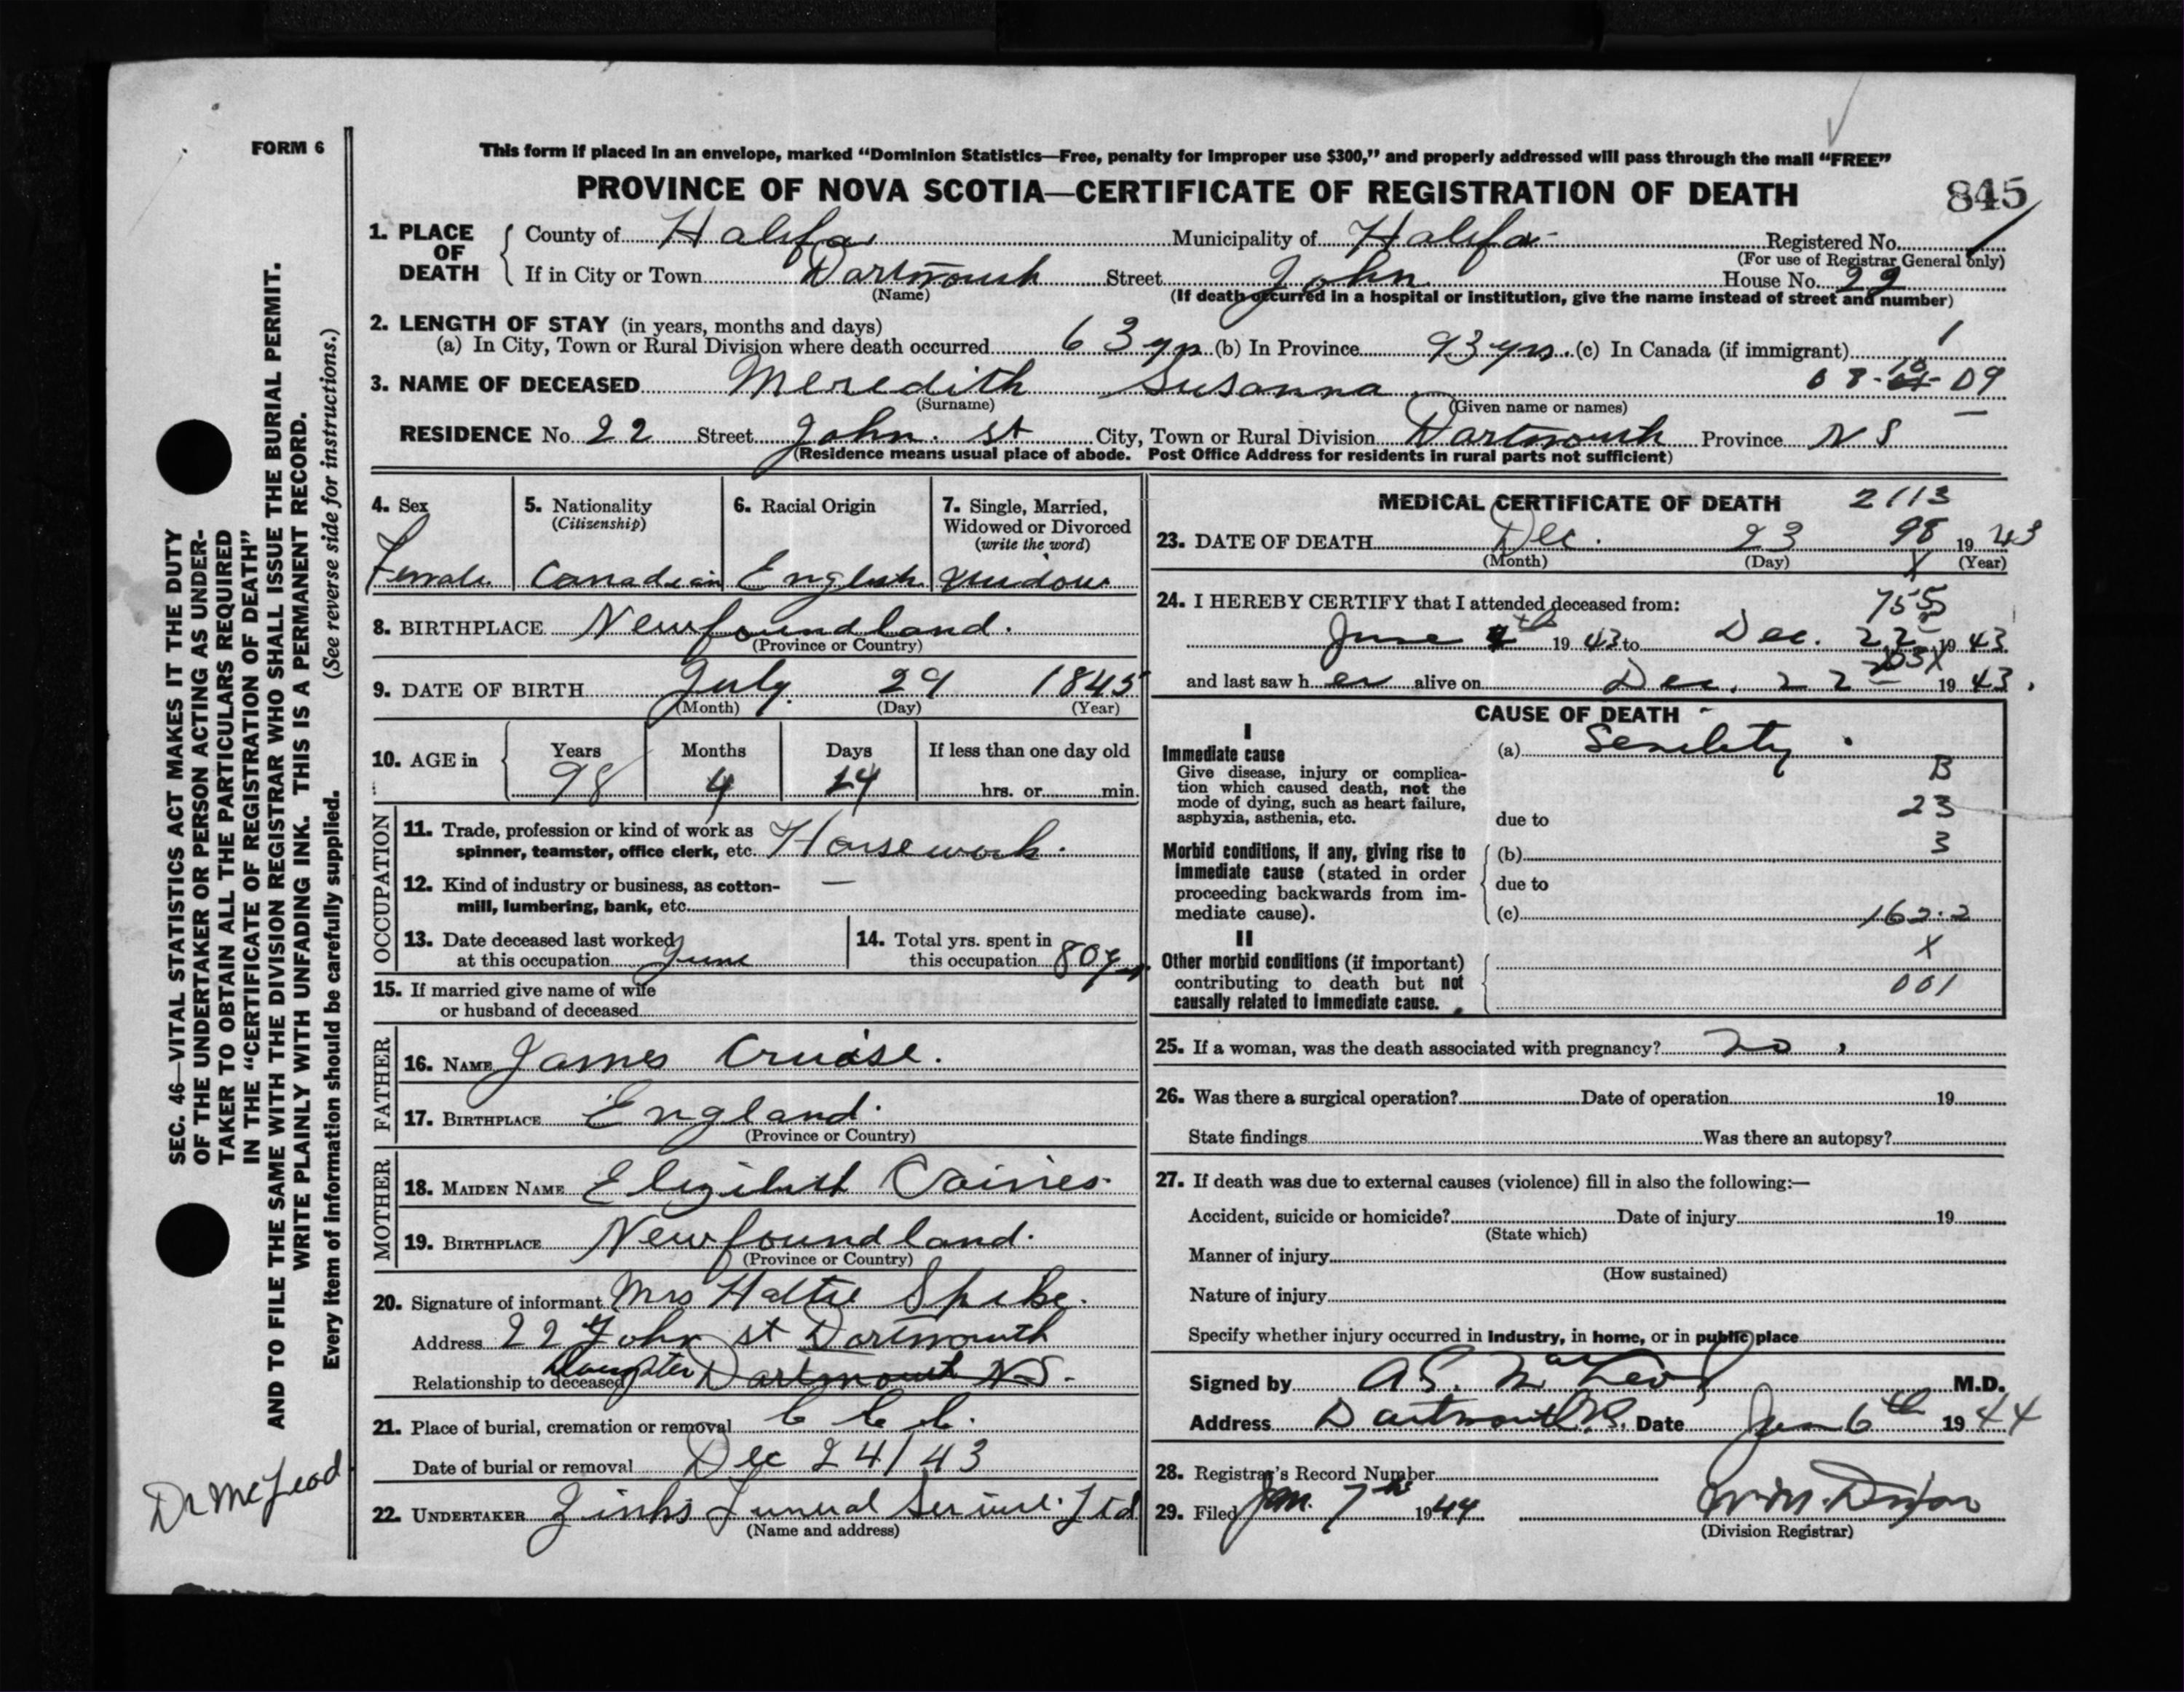 FORM 6
This form if placed in an envelope, marked “Dominion Statistics—Free, penalty for improper use $300,” and properly addressed will pass through the mail “FREE”
PROVINCE OF NOVA SCOTIA—CERTIFICATE OF REGISTRATION OF DEATH
845
1. PLACE OF DEATH
County of Halifax Municipality of Halifax Registered No.
(For use of Registrar General only)
If in City or Town Dartmouth Street John House No. 22
(Name) (If death occurred in a hospital or institution, give the name instead of street and number)
2. LENGTH OF STAY (in years, months and days)
(a) In City, Town or Rural Division where death occurred 63 yrs (b) In Province 93 yrs. (c) In Canada (if immigrant) 1
3. NAME OF DECEASED Meredith Susanna 08-10-09
(Surname) (Given name or names)
RESIDENCE No. 22 Street John. St City, Town or Rural Division Dartmouth Province N S
(Residence means usual place of abode. Post Office Address for residents in rural parts not sufficient)
4. Sex
Female
5. Nationality
(Citizenship)
Canadian
6. Racial Origin
English
7. Single, Married,
Widowed or Divorced
(write the word)
Widow
8. BIRTHPLACE Newfoundland.
(Province or Country)
9. DATE OF BIRTH July. 29 1845
(Month) (Day) (Year)
10. AGE in
Years Months Days If less than one day old
98 4 24 hrs. or min.
OCCUPATION
11. Trade, profession or kind of work as
spinner, teamster, office clerk, etc. Housework.
12. Kind of industry or business, as cotton- —
mill, lumbering, bank, etc.
13. Date deceased last worked
at this occupation June
14. Total yrs. spent in
this occupation 80 yrs
15. If married give name of wife
or husband of deceased
FATHER
16. NAME James Cruise.
17. BIRTHPLACE England.
(Province or Country)
MOTHER
18. MAIDEN NAME Elizibeth
19. BIRTHPLACE Newfoundland.
(Province or Country)
20. Signature of informant Mrs Hattie Spike.
Address 22 John st Dartmouth
Relationship to deceased Daughter Dartmouth NS.
21. Place of burial, cremation or removal
Date of burial or removal Dec 24/43
22. UNDERTAKER Zinks Funeral Service. Ltd
(Name and address)
MEDICAL CERTIFICATE OF DEATH 2113
98
23. DATE OF DEATH Dec. 23 19 43
(Month) (Day) (Year)
X
24. I HEREBY CERTIFY that I attended deceased from:
755
June th 19 43 to Dec. 22 19 43
and last saw h er alive on Dec. 22 19 43.
CAUSE OF DEATH
I
Immediate cause
Give disease, injury or complica-
tion which caused death, not the
mode of dying, such as heart failure,
asphyxia, asthenia, etc.
(a) Senility.
B
23
due to
3
Morbid conditions, if any, giving rise to
immediate cause (stated in order
proceeding backwards from im-
mediate cause).
(b)
due to
(c) 162.2
II
X
Other morbid conditions (if important)
contributing to death but not
causally related to immediate cause.
001
25. If a woman, was the death associated with pregnancy? no.
26. Was there a surgical operation? Date of operation 19
State findings Was there an autopsy?
27. If death was due to external causes (violence) fill in also the following:—
Accident, suicide or homicide? Date of injury 19
(State which)
Manner of injury
(How sustained)
Nature of injury
Specify whether injury occurred in industry, in home, or in public place
Signed by A S. MacLeod M.D.
Address Dartmouth Date Jan 6th 19 44
28. Registrar’s Record Number
29. Filed Jan. 7th 1944
W.M. Dixon
(Division Registrar)
SEC. 46—VITAL STATISTICS ACT MAKES IT THE DUTY
OF THE UNDERTAKER OR PERSON ACTING AS UNDER-
TAKER TO OBTAIN ALL THE PARTICULARS REQUIRED
IN THE “CERTIFICATE OF REGISTRATION OF DEATH”
AND TO FILE THE SAME WITH THE DIVISION REGISTRAR WHO SHALL ISSUE THE BURIAL PERMIT.
WRITE PLAINLY WITH UNFADING INK. THIS IS A PERMANENT RECORD.
Every item of information should be carefully supplied. (See reverse side for instructions.)
Dr McLeod